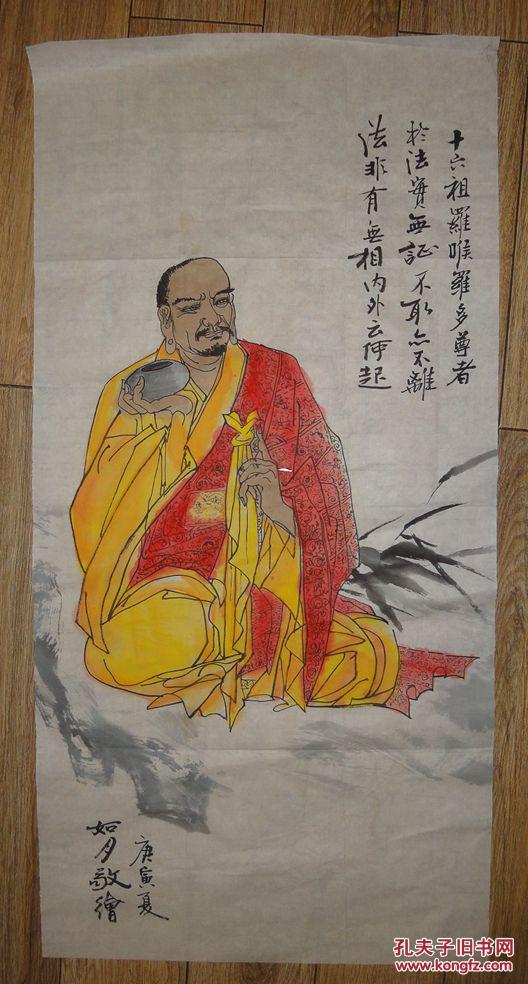 十六祖羅睺羅多尊者
於法實無証不取亦不離
法非有無相内外云何起
庚寅夏
如月敬繪
孔夫子旧书网
www.kongfz.com